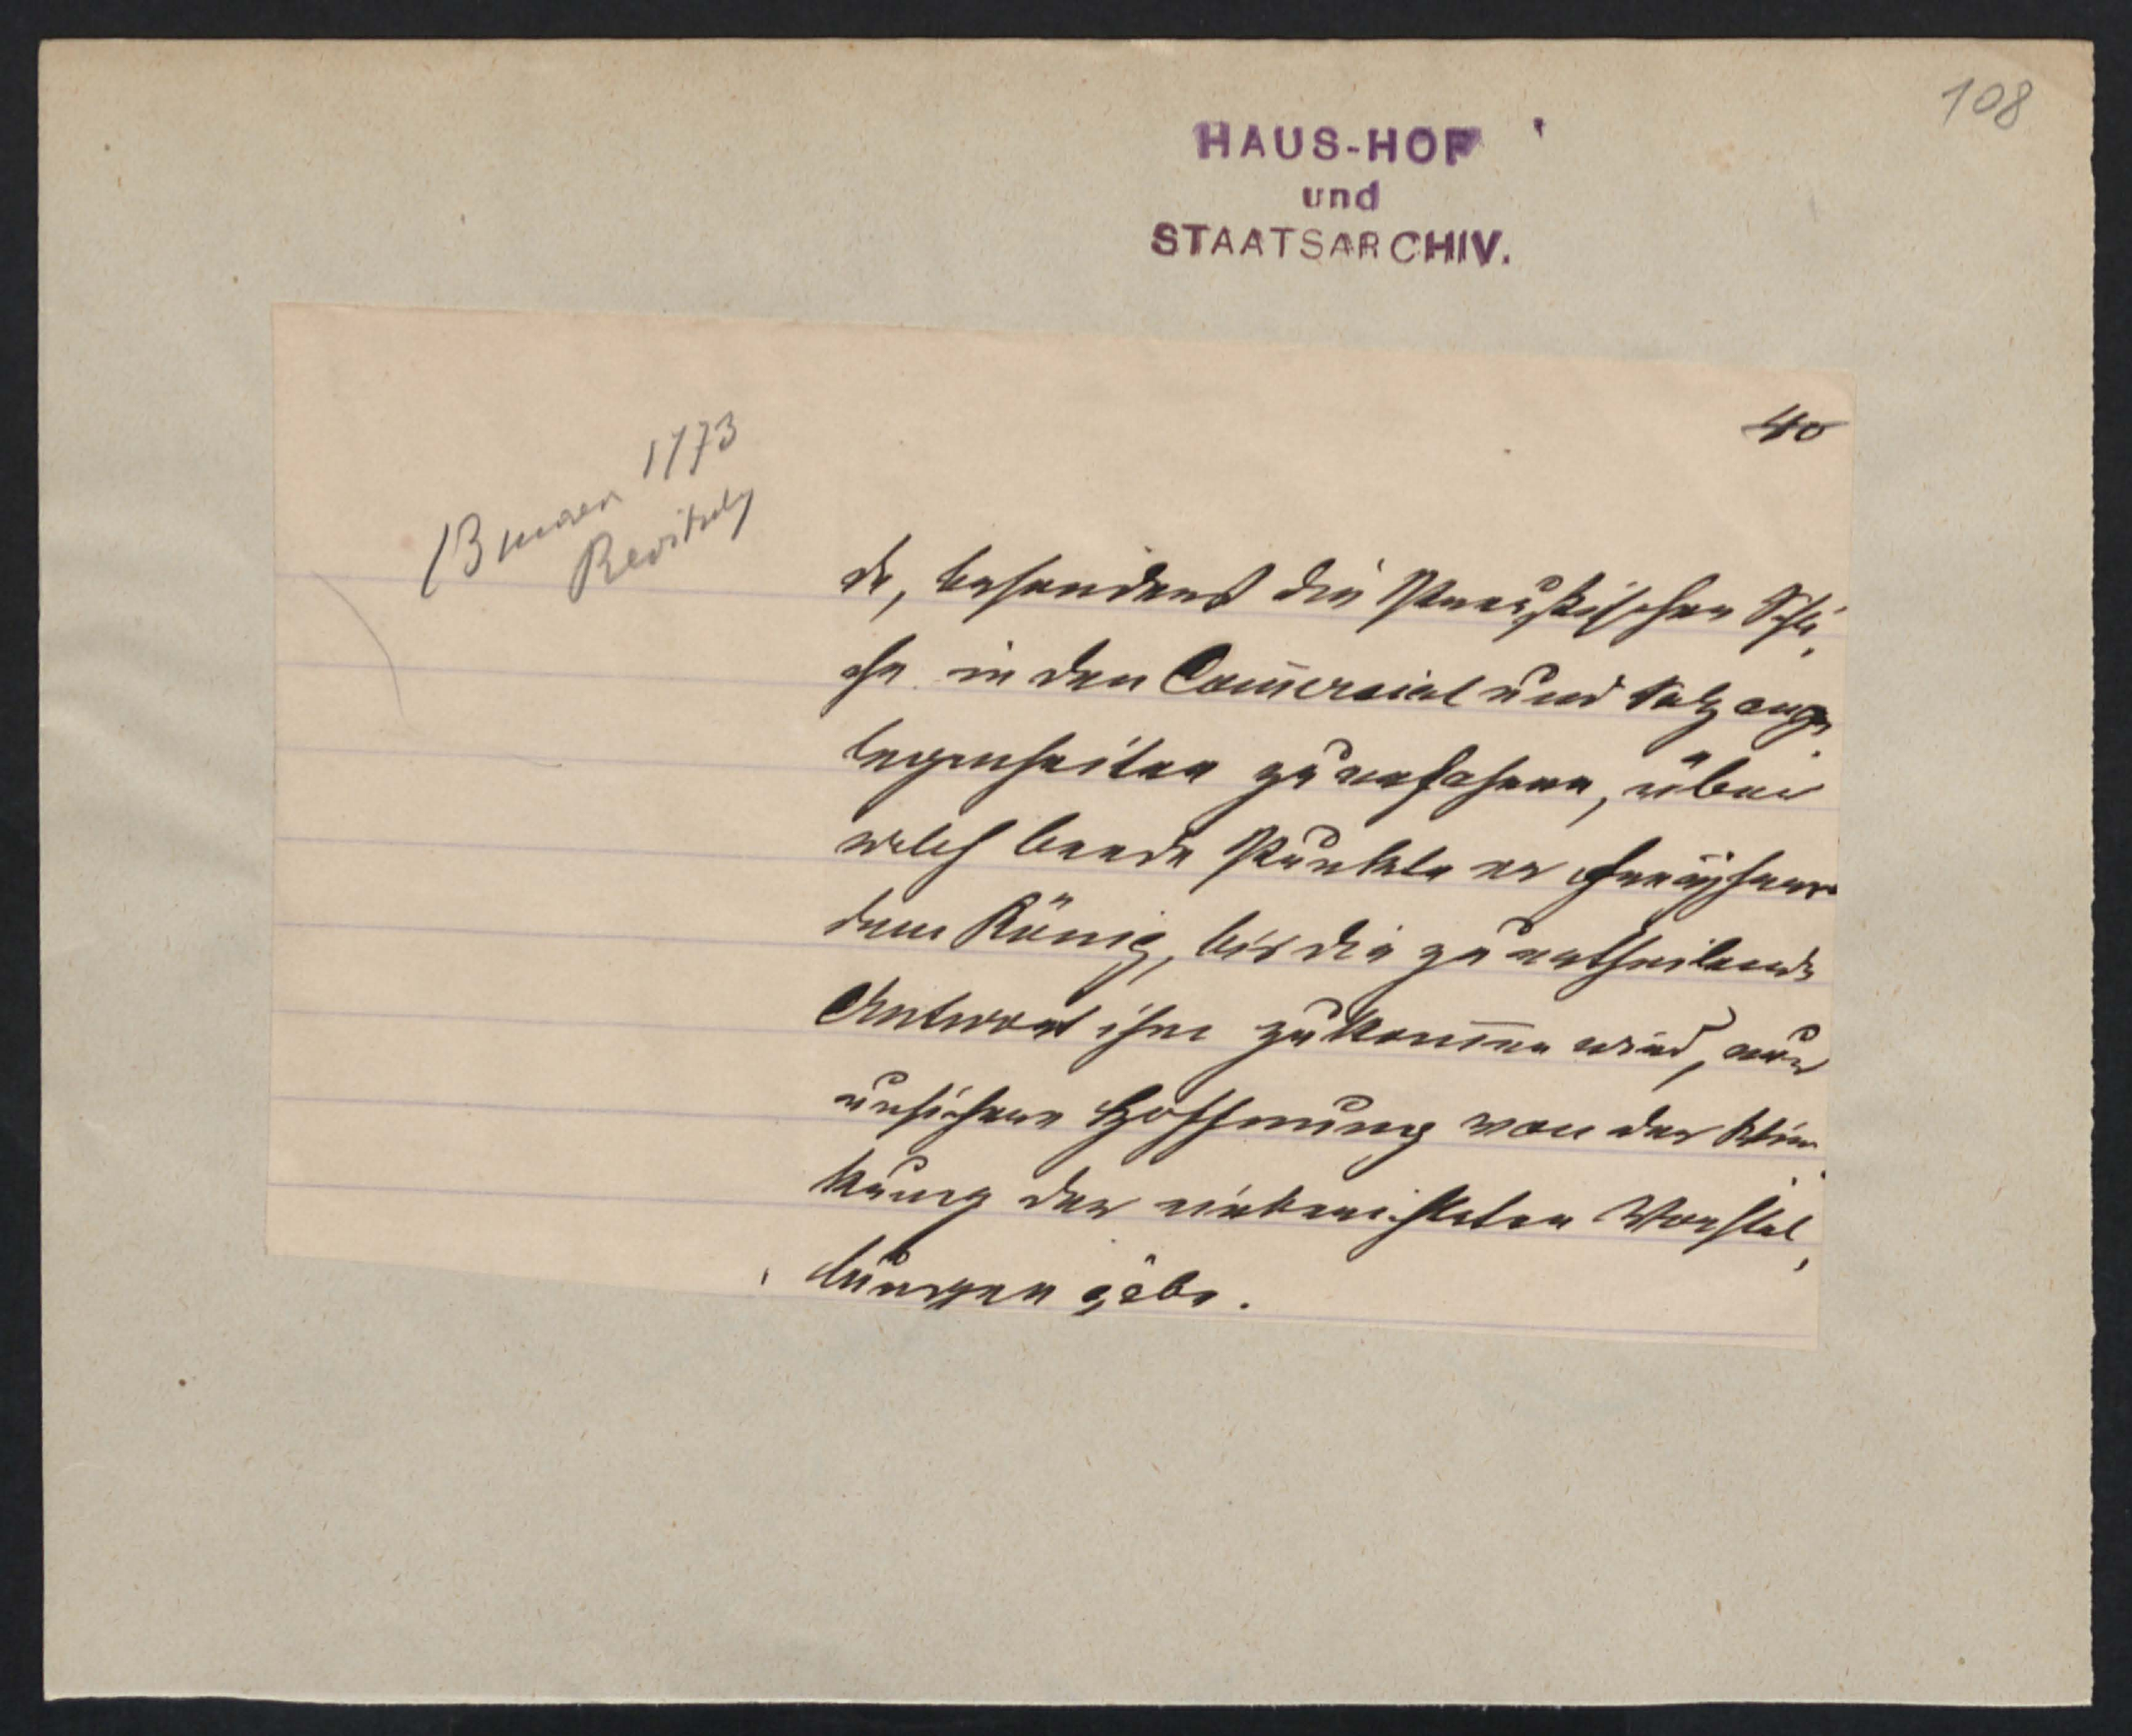 108
HAUS-HOF
und
STAATSARCHIV.
40
13 1773
Revitzky
de, besonders die Preußischen Schli,
che in den Com̄ercial und Salz ange,
legenheiten zu erfahren, über
welch beede Punkte er
dem König, bis die zu ertheilende
Antwort ihm zukom̄en wird, nur
unsichere Hoffnung von der Wir,
kung der Vorstel,
lungen gebe.